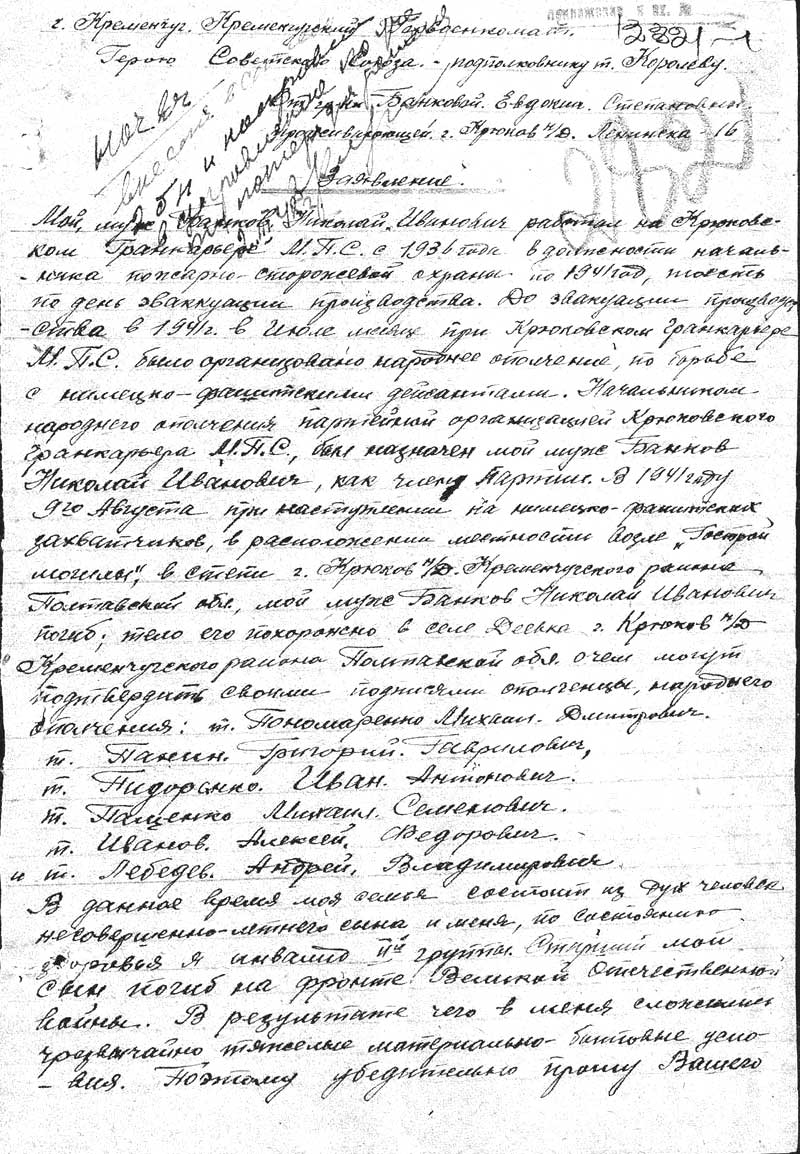 приложение к вх. №
г. Кременчуг. Кременчугский Райвоенкомат.
12821-1
Герою Советского Союза. - подполковнику т. Королеву.
От гр-ки Банковой. Евдокии. Степановны
проживающей. г. Крюков н/Д. Ленинска - 16
Заявление.
Мой, муж Банков Николай Иванович работал на Крюковс-
ком Гранкарьере М.П.С. с 1936 года в должности началь-
-ника пожарно-сторожевой охраны по 1941 год, тоесть
по день эваккуации производства. До эвакуации производ-
-ства в 1941 г. в Июле месяце при Крюковском Гранкарьере
М.П.С. было организовано народнее ополчение, по борьбе
с нимецко-фашитскими дейсантами. Начальником
народнего ополчения партейной организацией Крюковского
Гранкарьера М.П.С., был назначен мой муж Банков
Николай Иванович, как член Партии. В 1941 году
9го Августа при наступлении на нимецко-фашитских
захватчиков, в расположении местности возле "Гострой
могилы", в степи г. Крюков н/Д. Кременчугского района
Полтавской обл., мой муж Банков Николай Иванович
погиб; тело его похоронено в селе Деевка г. Крюков н/Д
Кременчугского района Полтавской обл. очем могут
подтвердить своими подписями ополченцы, народнего
ополчения: т. Пономаренко Михаил. Дмитрович.
т. Панин. Григорий. Гаврилович,
т. Пидоренко. Иван. Антонович.
т. Пащенко Михаил. Семенович.
т. Иванов. Алексей. Федорович.
и т. Лебедев. Андрей. Владимирович
В данное время моя семья состоит из двух человек
несовершенно-летнего сына и меня, по состоянию
здоровья я инвалид IIй группы. Старший мой
сын погиб на фронте Великой Отечественной
войны. В результате чего в меня сложились
чрезвычайно тяжелые материально-бытовые усло-
-вия. Поэтому убедительно прошу Вашего